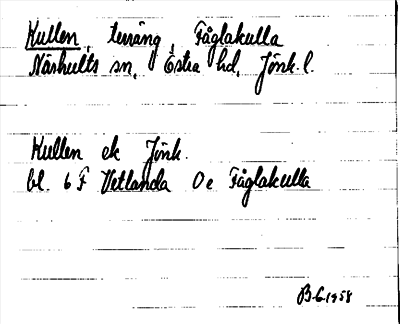 Kullen, terräng, Fåglakulla
Näshults sn, Östra hd, Jönk. l.
Kullen ek Jönk.
bl. 6 F Vetlanda O e Fåglakulla
B-G. 1958